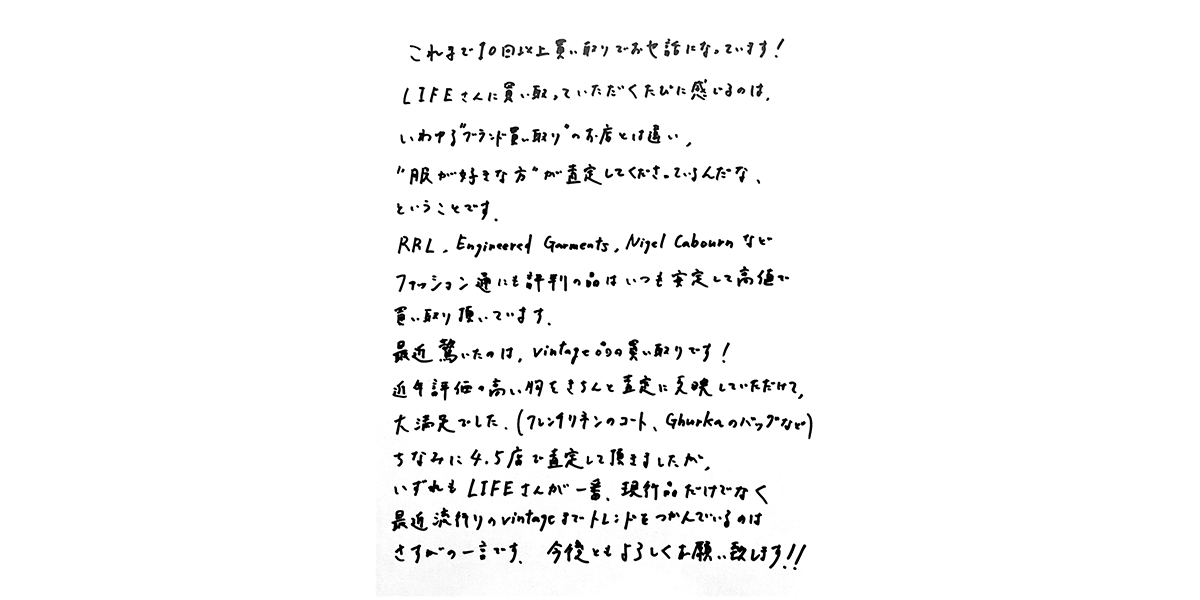 これまで10回以上買い取りでお世話になっています!
LIFEさんに買い取っていただくたびに感じるのは、
いわゆる"ブランド買い取り"のお店とは違い、
"服が好きな方"が査定してくださっているんだな、
ということです。
RRL、Engineered Garments、Nigel Cabournなど
ファッション通にも評判の品はいつも安定して高値で
買い取り頂いています。
最近驚いたのは、vintage品の買い取りです!
近年評価の高い物をきちんと査定に反映していただけて、
大満足でした。(フレンチリネンのコート、Ghurkaのバッグなど)
ちなみに4.5店で査定して頂きましたが、
いずれもLIFEさんが一番、現行品だけでなく
最近流行りのvintageまでトレンドをつかんでいるのは
さすがの一言です。 今後ともよろしくお願い致します!!